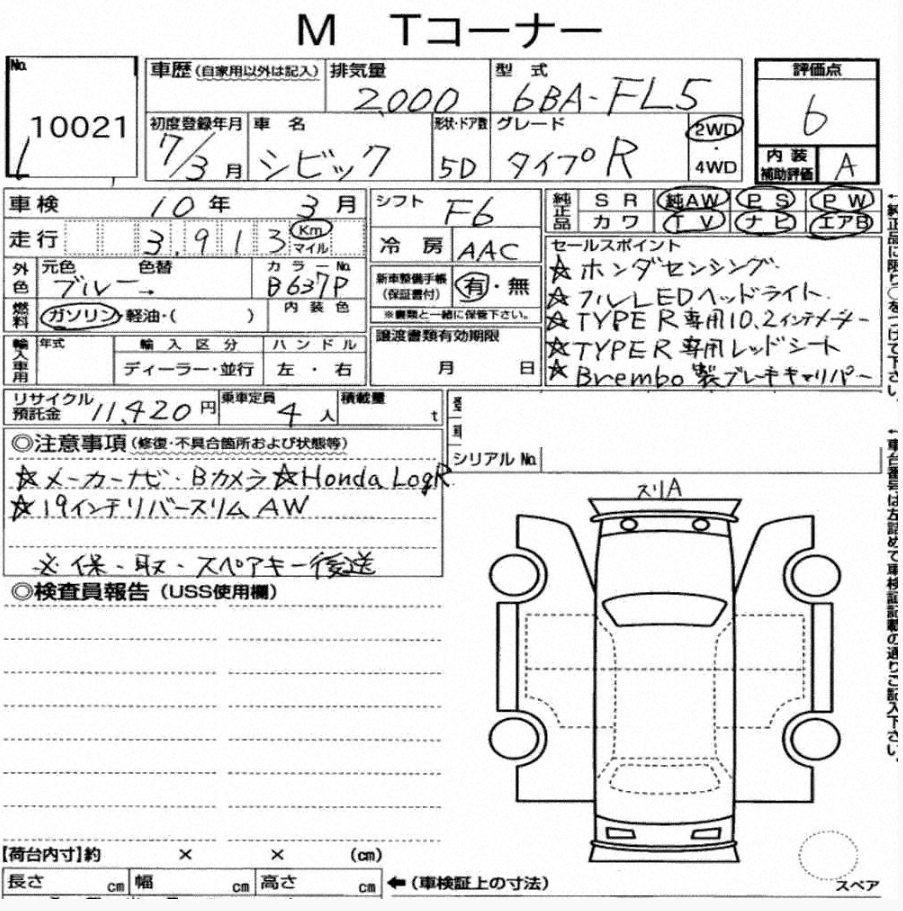 M Tコーナー
No. 10021
車歴(自家用以外は記入) 排気量 2,000 型式 6BA-FL5 評価点 6
初度登録年月 7/3月 車名 シビック 形状・ドア数 5D グレード タイプR 2WD・4WD 内装補助評価 A
車検 10年 3月 シフト F6 純正品 SR 純AW PS PW
走行 3,913 Km マイル 冷房 AAC カワ TV ナビ エアB
外色 元色 ブルー 色替 → カラーNo. B637P 新車整備手帳(保証書付) 有・無 ※書類と一緒に保管下さい。
燃料 ガソリン・軽油・( ) 内装色
セールスポイント
☆ホンダセンシング
☆フルLEDヘッドライト
☆TYPE R専用10.2インチメーター
☆TYPE R専用レッドシート
☆Brembo製ブレーキキャリパー
輸入車用 年式 輸入区分 ディーラー・並行 ハンドル 左・右 譲渡書類有効期限 月 日
リサイクル預託金 11,420円 乗車定員 4人 積載量 t
シリアルNo.
◎注意事項(修復・不具合箇所および状態等)
☆メーカーナビ・Bカメラ☆Honda LogR
☆19インチリバースリムAW
※保・取・スペアキー後送
◎検査員報告(USS使用欄)
スリA
【荷台内寸】約 × × (cm)
長さ cm 幅 cm 高さ cm ←(車検証上の寸法)
スペア
←純正品に限り○をつけて下さい。
←車台番号は左詰めで車検証記載の通りご記入下さい。